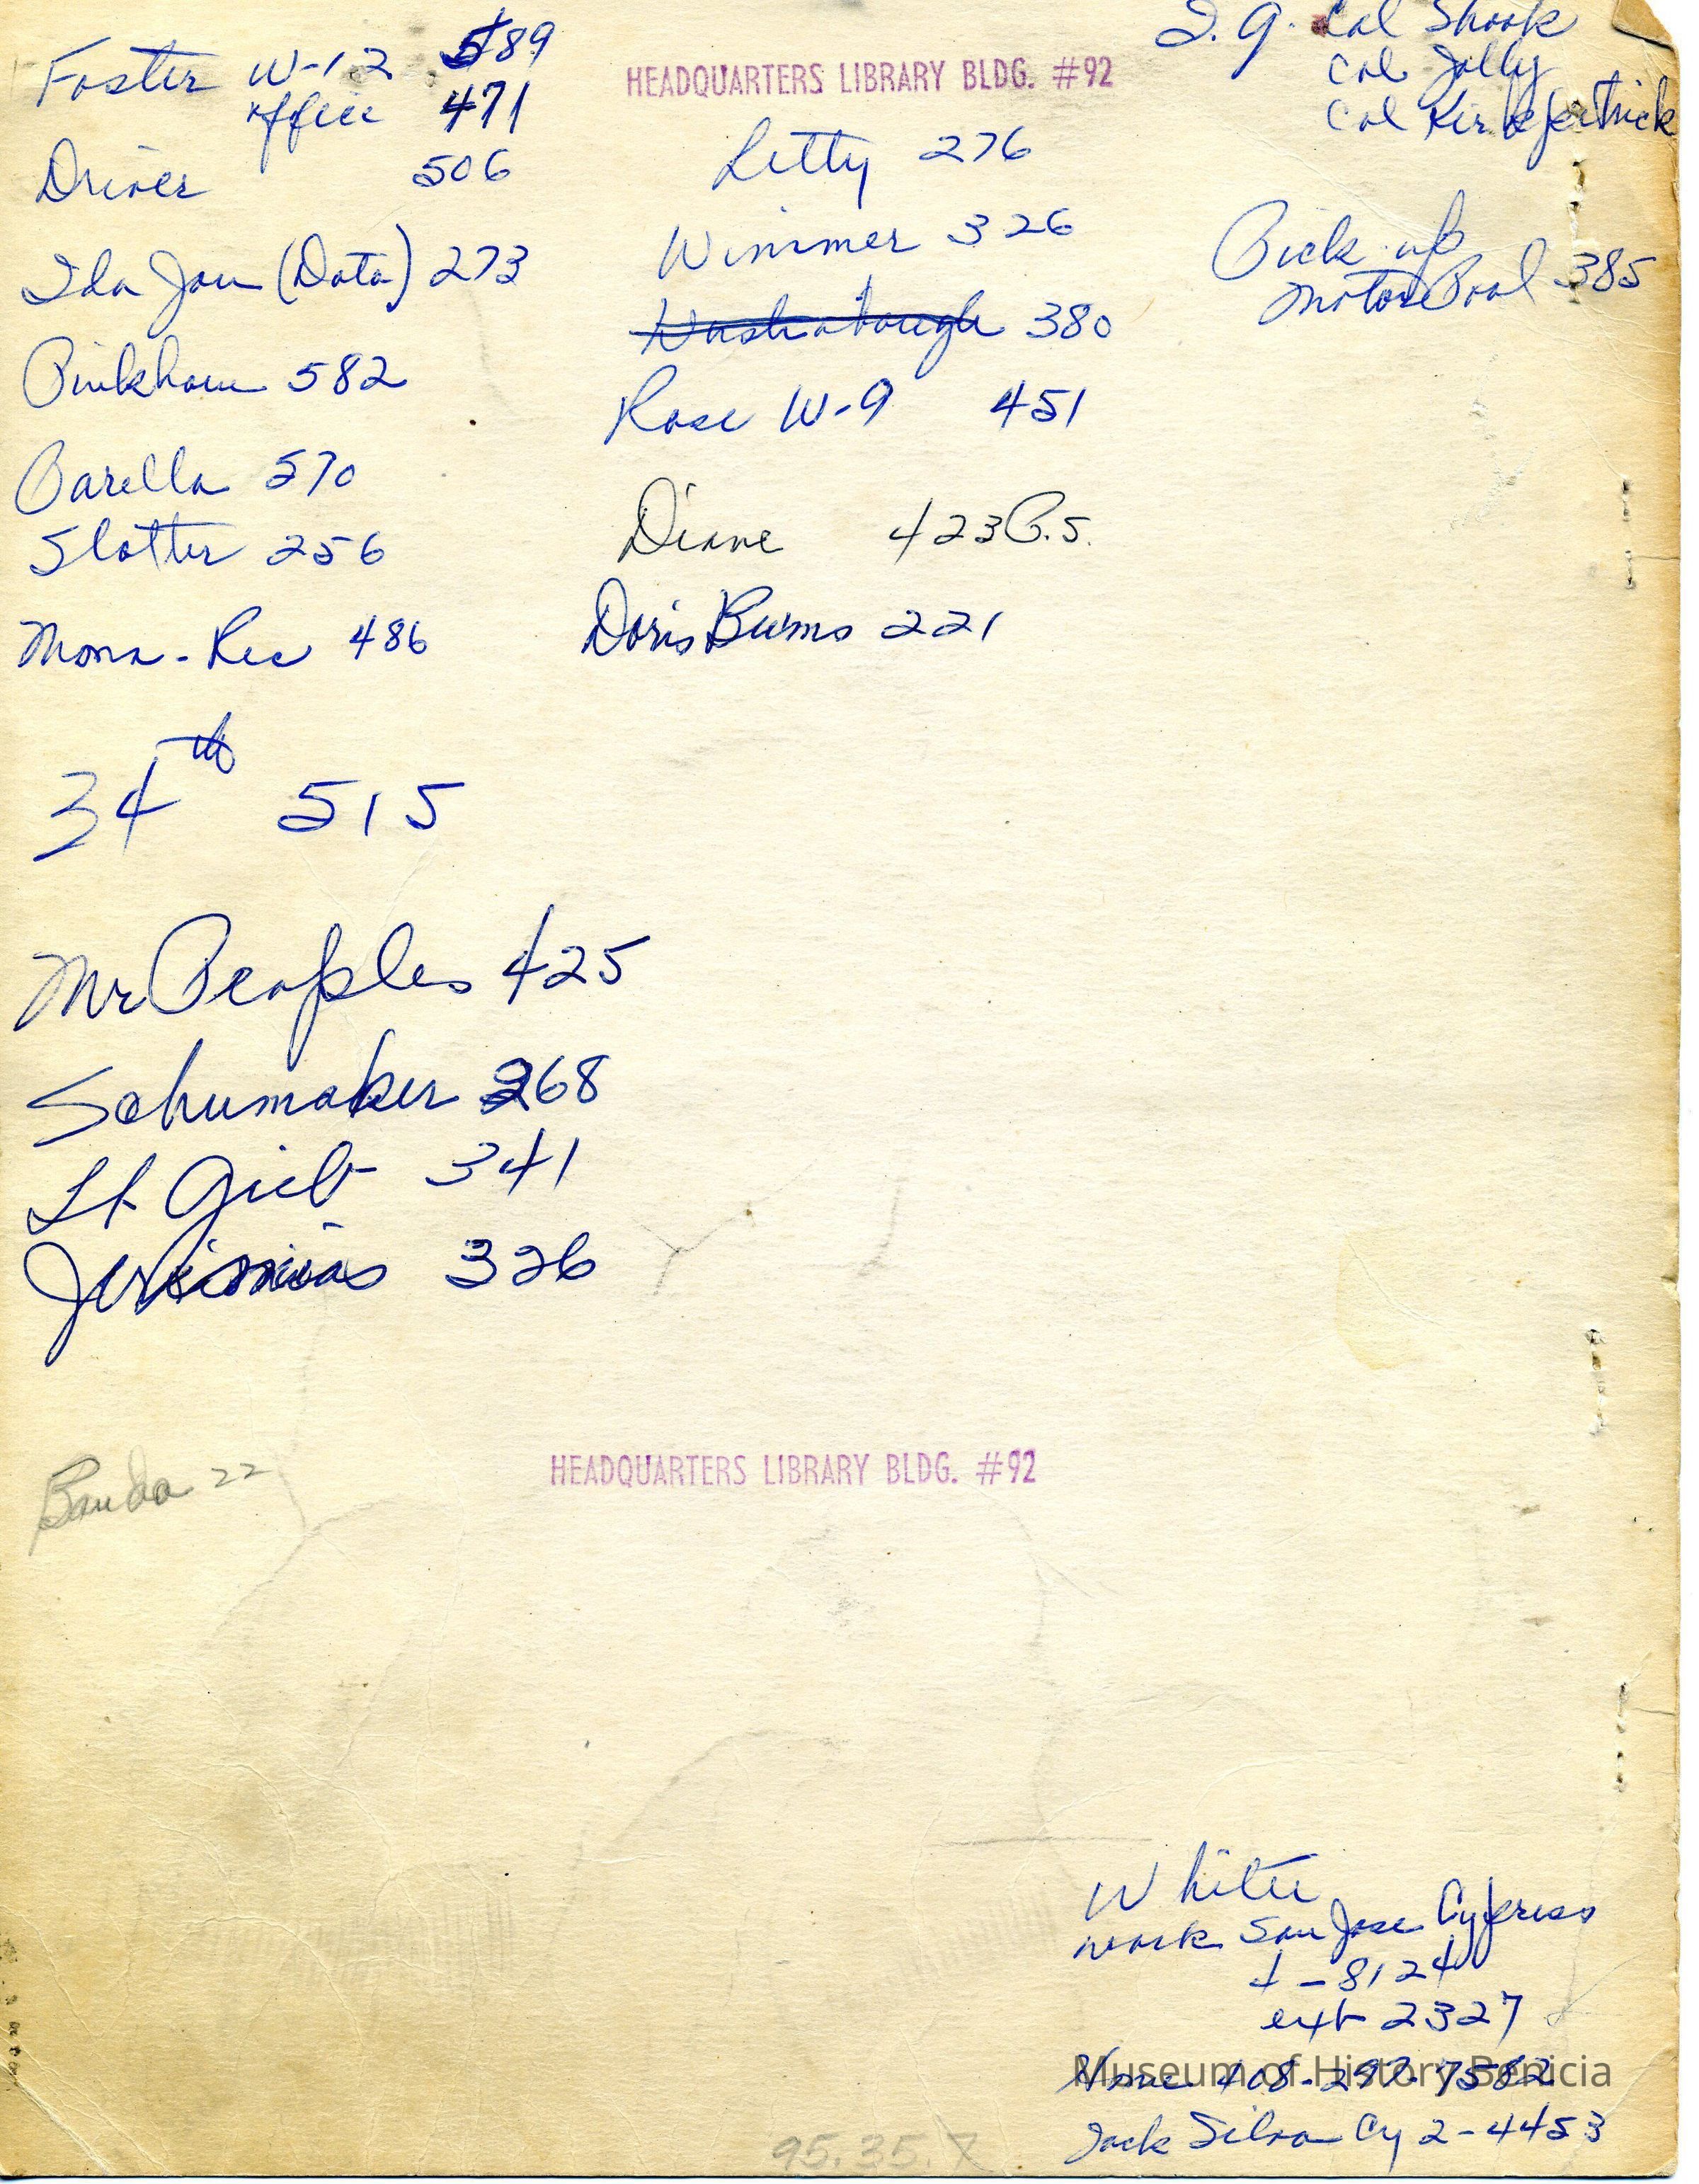 Foster W-12 589
office 471
Driver 506
Ida Jau (Data) 273
Pinkham 582
Parella 570
Slotter 256
Mona - Rec 486
34th 515
Mr Peoples 425
Schumaker 268
Lt Grieb 341
326
22
HEADQUARTERS LIBRARY BLDG. #92
Letty 276
Wimmer 326
Washabaugh 380
Rose W-9 451
Diane 423 P.S.
Doris Burns 221
HEADQUARTERS LIBRARY BLDG. #92
I.G. Col Shook
Col Jolly
Col Kirkpatrick
Pick-up
Motor Pool 385
White
work San Jose Cypress
4-8124
ext 2327
Home 408-297-7582
Jack Silva Cy 2-4453
95.35.7
Museum of History Benicia